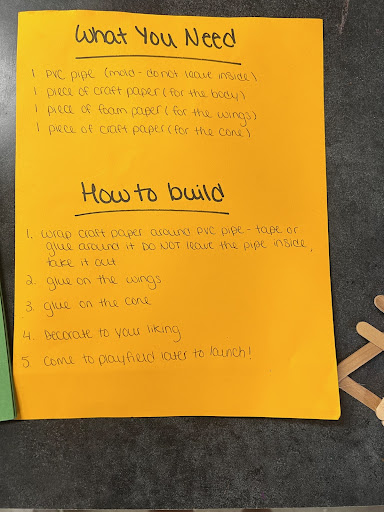 What You Need
1 PVC pipe (mold - do not leave inside)
1 piece of craft paper (for the body)
1 piece of foam paper (for the wings)
1 piece of craft paper (for the cone)
How to build
1. wrap craft paper around PVC pipe - tape or
glue around it DO NOT leave the pipe inside,
take it out
2. glue on the wings
3. glue on the cone
4. Decorate to your liking
5. Come to playfield later to launch!